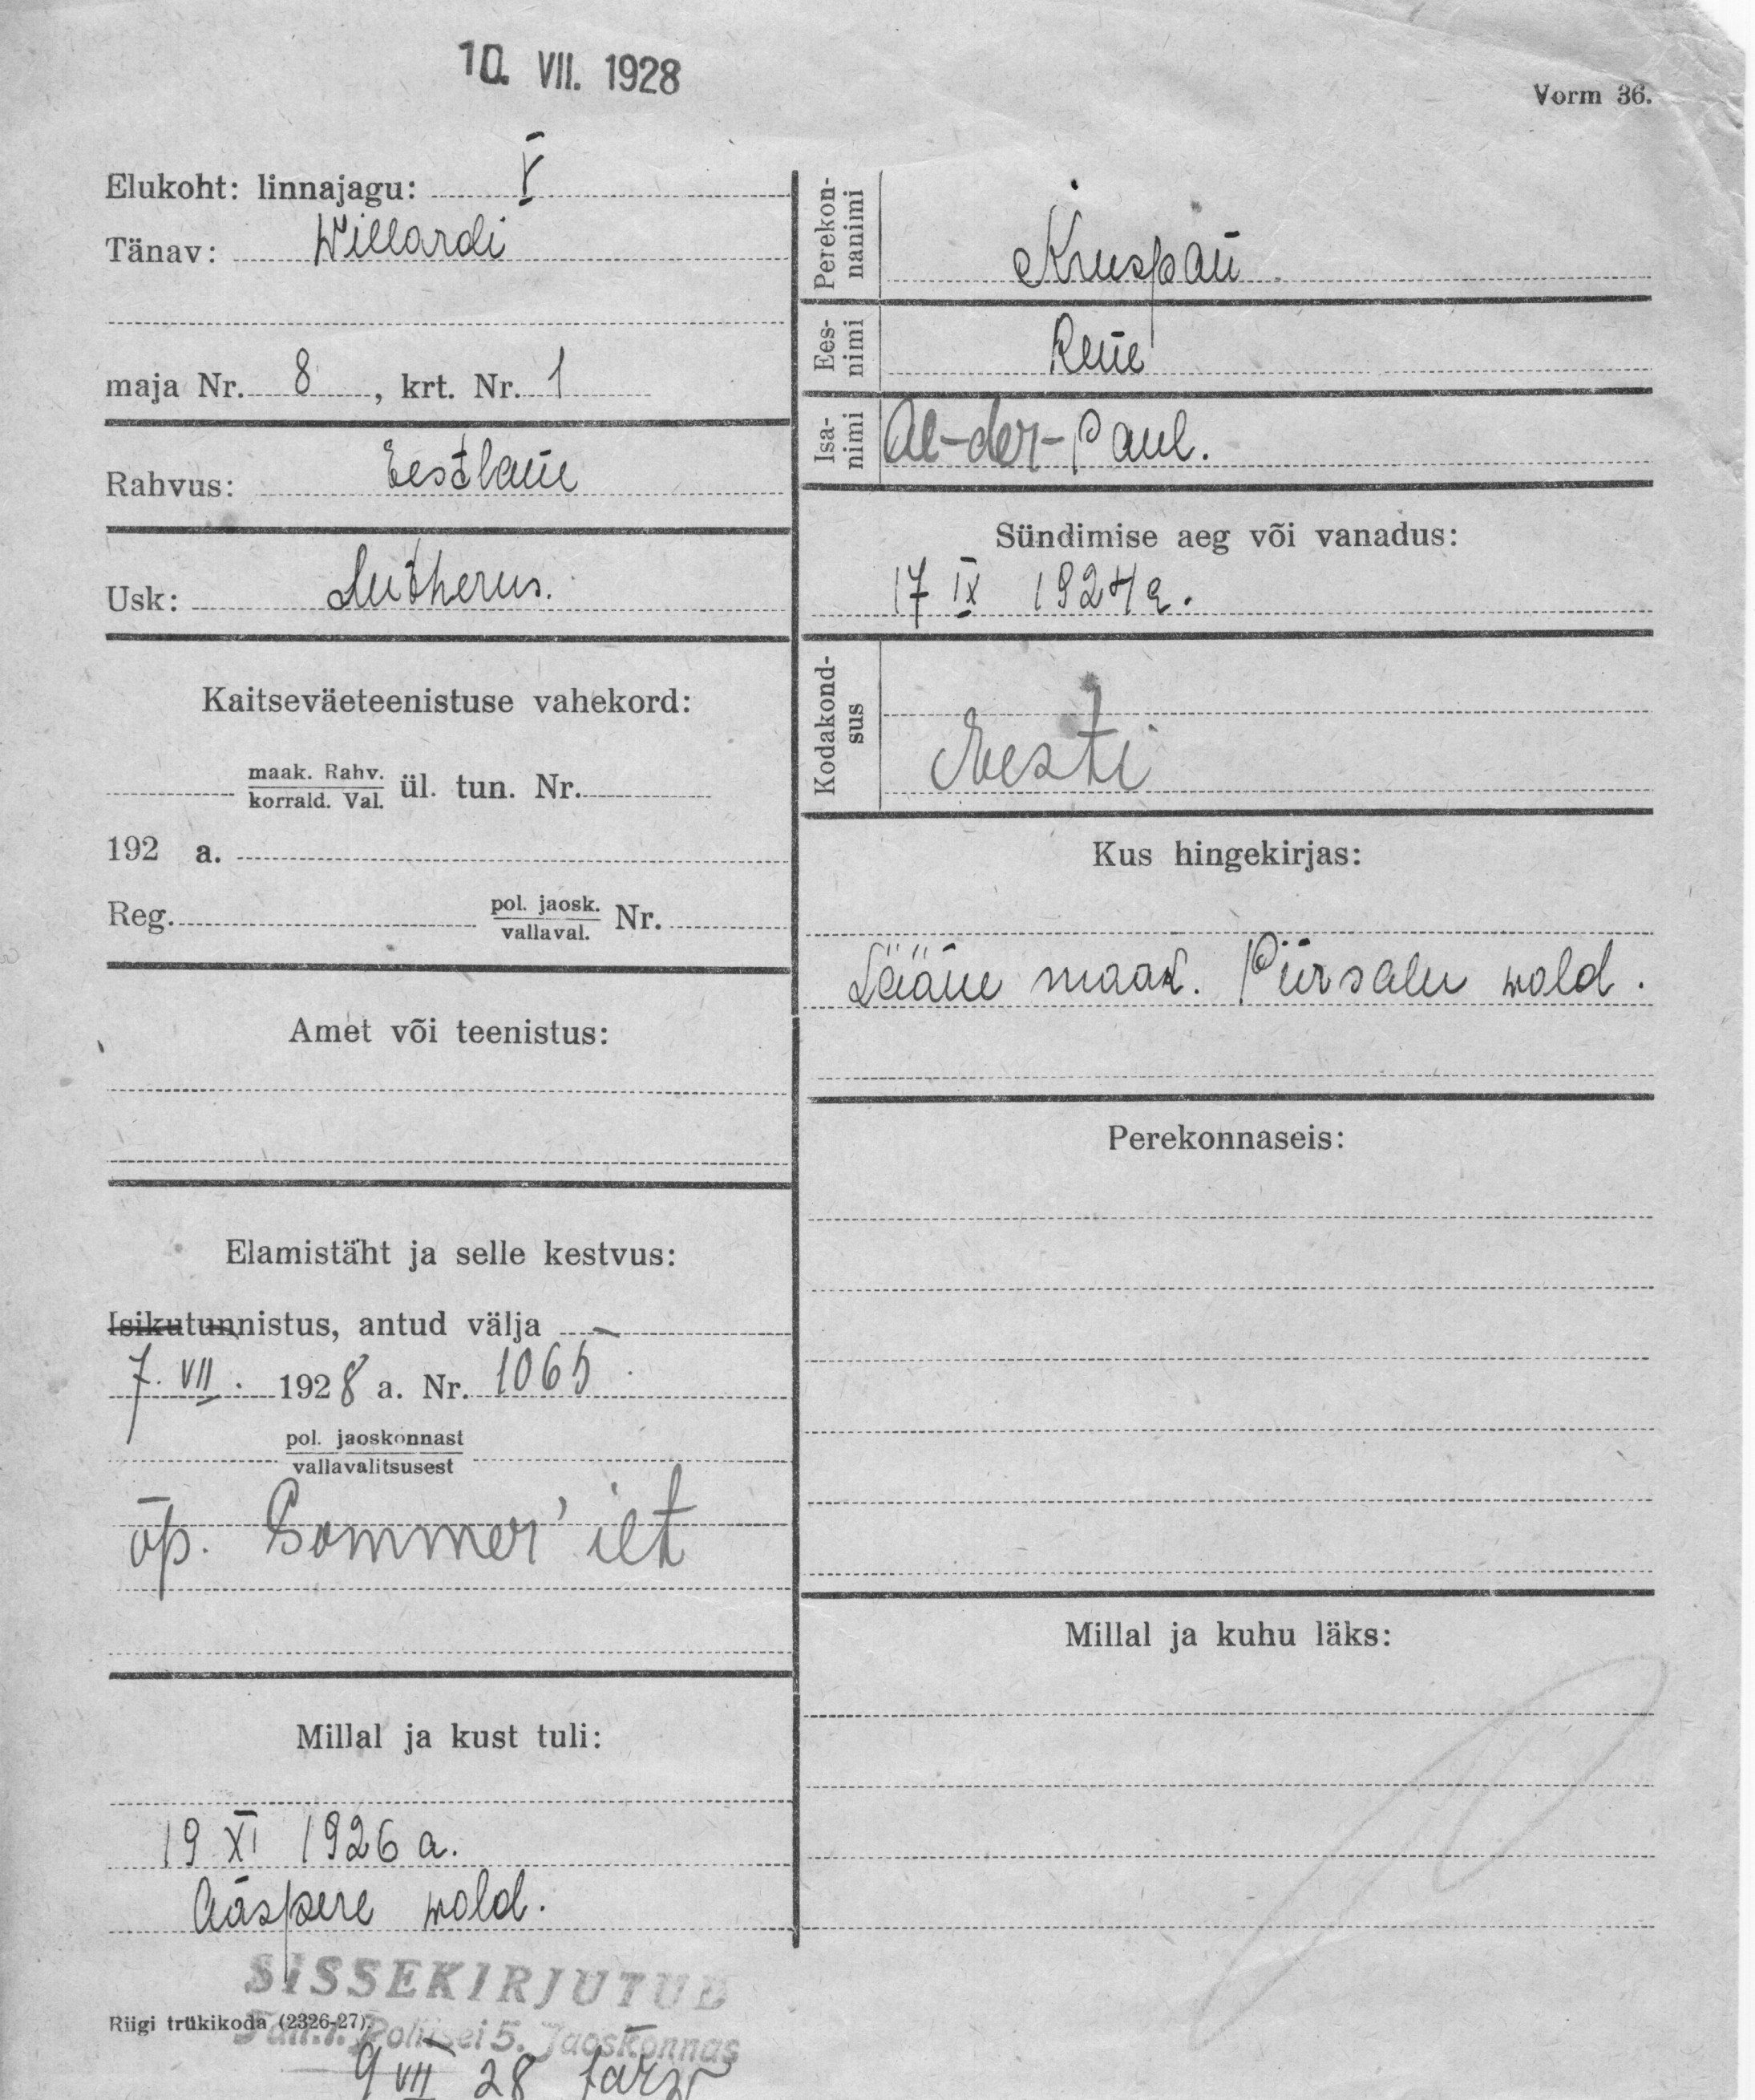 10. VII. 1928
Vorm 36.
Elukoht: linnajagu: V
Tänav: Willardi
maja Nr. 8, krt. Nr. 1
Rahvus: Eestlane
Usk: Lutherus.
Kaitseväeteenistuse vahekord:
maak. Rahv.
korrald. Val. ül. tun. Nr.
192 a.
Reg. pol. jaosk.
vallaval. Nr.
Amet või teenistus:
Elamistäht ja selle kestvus:
Isikutunnistus, antud välja
7. VII. 1928 a. Nr. 1065
pol. jaoskonnast
vallavalitsusest
õp. Sommer'ilt
Millal ja kust tuli:
19 XI 1926 a.
Aaspere wald.
SISSEKIRJUTUD
Riigi trükikoda (2326-27).
Tall.l. Politsei 5. Jaoskonnas
9 VII 28
Perekon-
nanimi
Kruspan
Ees-
nimi
Rene
Isa-
nimi
Al-der-Paul.
Sündimise aeg või vanadus:
17 IX 1924 a.
Kodakond-
sus
Eesti
Kus hingekirjas:
Lääne maak. Piirsalu wald.
Perekonnaseis:
Millal ja kuhu läks: